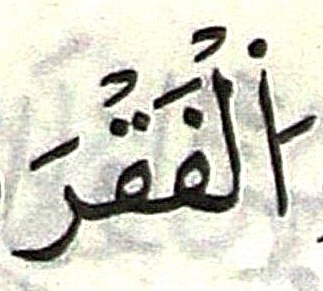 اْلْفَقْرَ